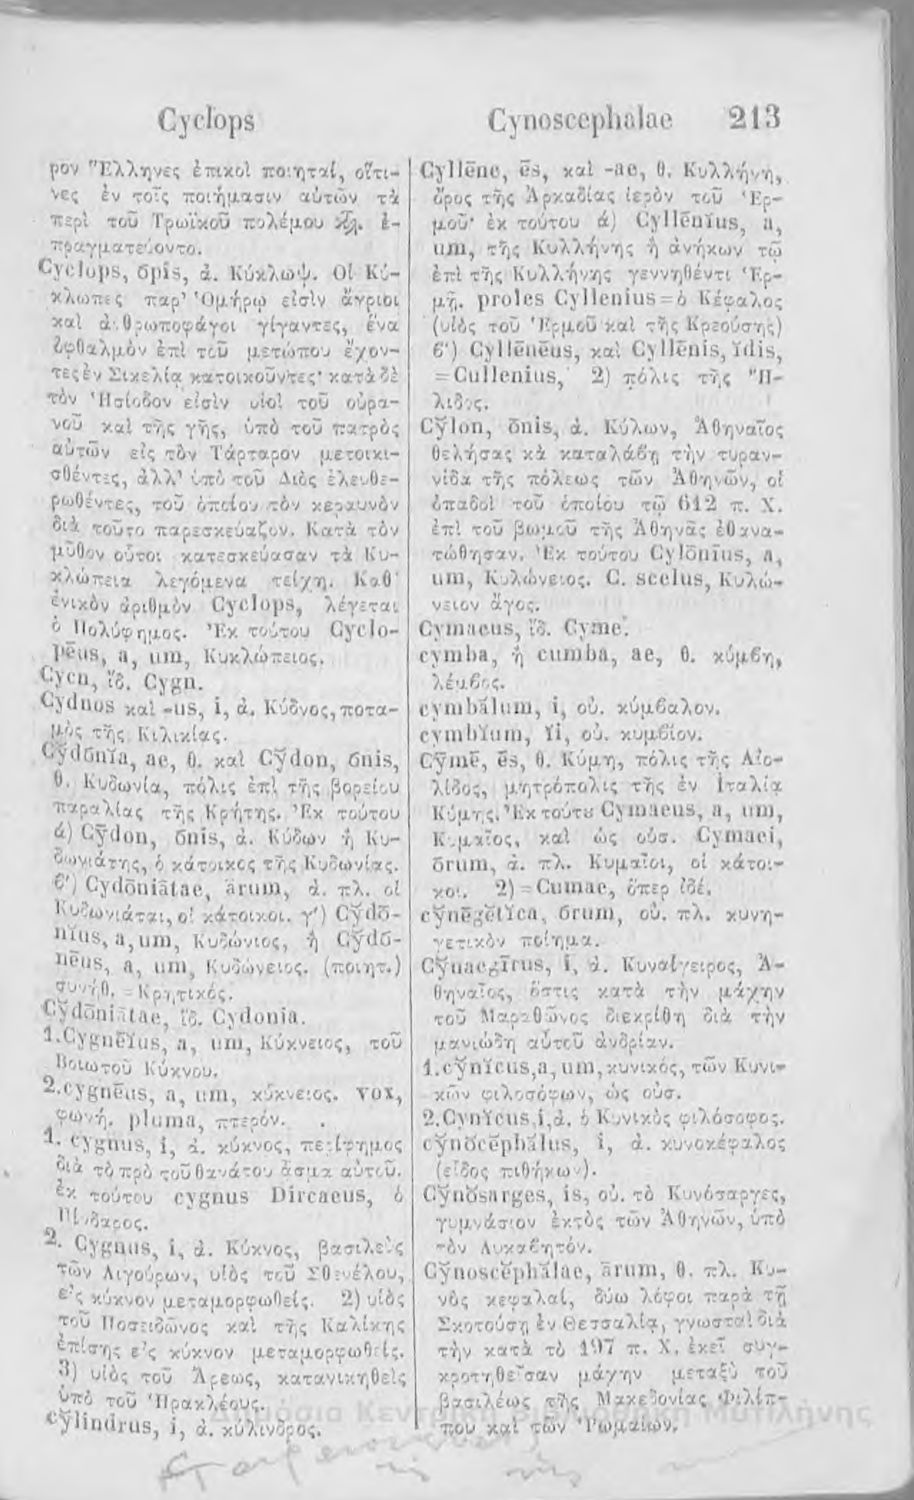 Cyclops
Cynoscephalae 213
ρον Ἕλληνες ἐπικοὶ ποιηταί, οἵτι-
νες ἐν τοῖς ποιήμασιν αὐτῶν τὰ
περὶ τοῦ Τρωϊκοῦ πολέμου κλ. ἐ-
πραγματεύοντο.
Cyclops, ŏpis, ἀ. Κύκλωψ. Οἱ Κύ-
κλωπες παρ’ Ὁμήρῳ εἰσὶν ἄγριοι
καὶ ἀνθρωποφάγοι γίγαντες, ἕνα
ὀφθαλμὸν ἐπὶ τοῦ μετώπου ἔχον-
τες ἐν Σικελίᾳ κατοικοῦντες· κατὰ δὲ
τὸν Ἡσίοδον εἰσὶν υἱοὶ τοῦ οὐρα-
νοῦ καὶ τῆς γῆς, ὑπὸ τοῦ πατρὸς
αὐτῶν εἰς τὸν Τάρταρον μετοικι-
σθέντες, ἀλλ’ ὑπὸ τοῦ Διὸς ἐλευθε-
ρωθέντες, τοῦ ὁποίου τὸν κεραυνὸν
διὰ τοῦτο παρεσκεύαζον. Κατὰ τὸν
μῦθον οὗτοι κατεσκεύασαν τὰ Κυ-
κλώπεια λεγόμενα τείχη. Καθ’
ἑνικὸν ἀριθμὸν Cyclops, λέγεται
ὁ Πολύφημος. Ἐκ τούτου Cyclo-
pēus, a, um, Κυκλώπειος.
Cycn, ἴδ. Cygn.
Cydnos καὶ -us, i, ἀ. Κύδνος, ποτα-
μὸς τῆς Κιλικίας.
Cy̆dōnĭa, ae, θ. καὶ Cy̆don, ōnis,
θ. Κυδωνία, πόλις ἐπὶ τῆς βορείου
παραλίας τῆς Κρήτης. Ἐκ τούτου
ά) Cy̆don, ōnis, ἀ. Κύδων ἢ Κυ-
δωνιάτης, ὁ κάτοικος τῆς Κυδωνίας.
β’) Cy̆dōniātae, ārum, ἀ. πλ. οἱ
Κυδωνιάται, οἱ κάτοικοι. γ’) Cy̆dō-
nĭus, a, um, Κυδώνιος, ἢ Cy̆dō-
nēus, a, um, Κυδώνειος. (ποιητ.)
συνήθ. = Κρητικός.
Cy̆dōniātae, ἴδ. Cydonia.
1. Cygnēĭus, a, um, Κύκνειος, τοῦ
Βοιωτοῦ Κύκνου.
2. cygnēus, a, um, κύκνειος. vox,
φωνή. pluma, πτερόν.
1. cygnus, i, ἀ. κύκνος, περίφημος
διὰ τὸ πρὸ τοῦ θανάτου ᾆσμα αὐτοῦ.
ἐκ τούτου cygnus Dircaeus, ὁ
Πίνδαρος.
2. Cygnus, i, ἀ. Κύκνος, βασιλεὺς
τῶν Λιγούρων, υἱὸς τοῦ Σθενέλου,
εἰς κύκνον μεταμορφωθείς. 2) υἱὸς
τοῦ Ποσειδῶνος καὶ τῆς Καλίκης
ἐπίσης εἰς κύκνον μεταμορφωθείς.
3) υἱὸς τοῦ Ἄρεως, κατανικηθεὶς
ὑπὸ τοῦ Ἡρακλέους.
cy̆lindrus, i, ἀ. κύλινδρος.
Cyllēne, ēs, καὶ -ae, θ. Κυλλήνη,
ὄρος τῆς Ἀρκαδίας ἱερὸν τοῦ Ἑρ-
μοῦ· ἐκ τούτου ά) Cyllēnĭus, a,
um, τῆς Κυλλήνης ἢ ἀνήκων τῷ
ἐπὶ τῆς Κυλλήνης γεννηθέντι Ἑρ-
μῇ. proles Cyllenius = ὁ Κέφαλος
(υἱὸς τοῦ Ἑρμοῦ καὶ τῆς Κρεούσης)
β’) Cyllēnēus, καὶ Cyllēnis, ĭdis,
= Cullenius, 2) πόλις τῆς Ἤ-
λιδος.
Cy̆lon, ōnis, ἀ. Κύλων, Ἀθηναῖος
θελήσας κὰ καταλάβῃ τὴν τυραν-
νίδα τῆς πόλεως τῶν Ἀθηνῶν, οἱ
ὀπαδοὶ τοῦ ὁποίου τῷ 612 π. Χ.
ἐπὶ τοῦ βωμοῦ τῆς Ἀθηνᾶς ἐθανα-
τώθησαν. Ἐκ τούτου Cylōnĭus, a,
um, Κυλώνειος. C. scelus, Κυλώ-
νειον ἄγος.
Cymaeus, ἴδ. Cyme.
cymba, ἢ cumba, ae, θ. κύμβη,
λέμβος.
cymbălum, i, οὐ. κύμβαλον.
cymbĭum, ĭi, οὐ. κυμβίον.
Cy̆mē, ēs, θ. Κύμη, πόλις τῆς Αἰο-
λίδος, μητρόπολις τῆς ἐν Ἰταλίᾳ
Κύμης. Ἐκ τούτȣ Cymaeus, a, um,
Κυμαῖος, καὶ ὡς οὐσ. Cymaei,
ōrum, ἀ. πλ. Κυμαῖοι, οἱ κάτοι-
κοι. 2) = Cumae, ὅπερ ἰδέ.
cy̆nēgĕtĭca, ōrum, οὐ. πλ. κυνη-
γετικὸν ποίημα.
Cy̆naegīrus, i, ἀ. Κυναίγειρος, Ἀ-
θηναῖος, ὅστις κατὰ τὴν μάχην
τοῦ Μαραθῶνος διεκρίθη διὰ τὴν
μανιώδη αὐτοῦ ἀνδρίαν.
1. cy̆nĭcus, a, um, κυνικός, τῶν Κυνι-
κῶν φιλοσόφων, ὡς οὐσ.
2. Cynĭcus, i, ἀ. ὁ Κυνικὸς φιλόσοφος.
cy̆nŏcĕphălus, i, ἀ. κυνοκέφαλος
(εἶδος πιθήκων).
Cy̆nŏsarges, is, οὐ. τὸ Κυνόσαργες,
γυμνάσιον ἐκτὸς τῶν Ἀθηνῶν, ὑπὸ
τὸν Λυκαβητόν.
Cy̆noscĕphălae, ārum, θ. πλ. Κυ-
νὸς κεφαλαί, δύω λόφοι παρὰ τῇ
Σκοτούσῃ ἐν Θεσσαλίᾳ, γνωσταὶ διὰ
τὴν κατὰ τὸ 197 π. Χ. ἐκεῖ συγ-
κροτηθεῖσαν μάχην μεταξὺ τοῦ
βασιλέως τῆς Μακεδονίας Φιλίπ-
που καὶ τῶν Ῥωμαίων.
Δημόσια Κεντρική Βιβλιοθήκη Μυτιλήνης